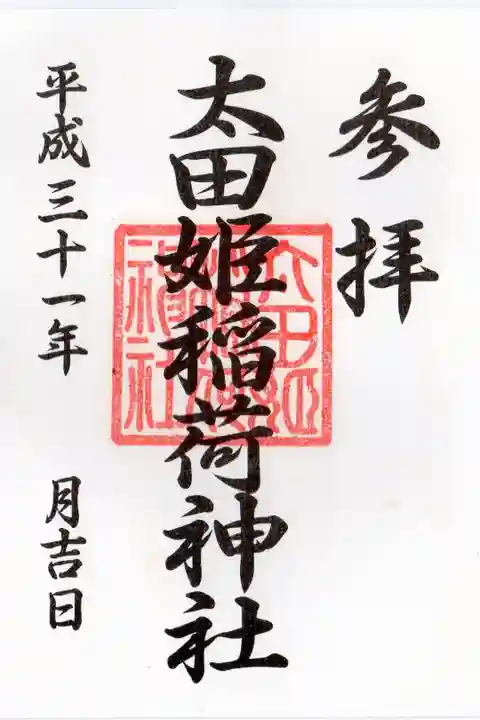 参拝
太田姫稲荷神社
平成三十一年 月吉日